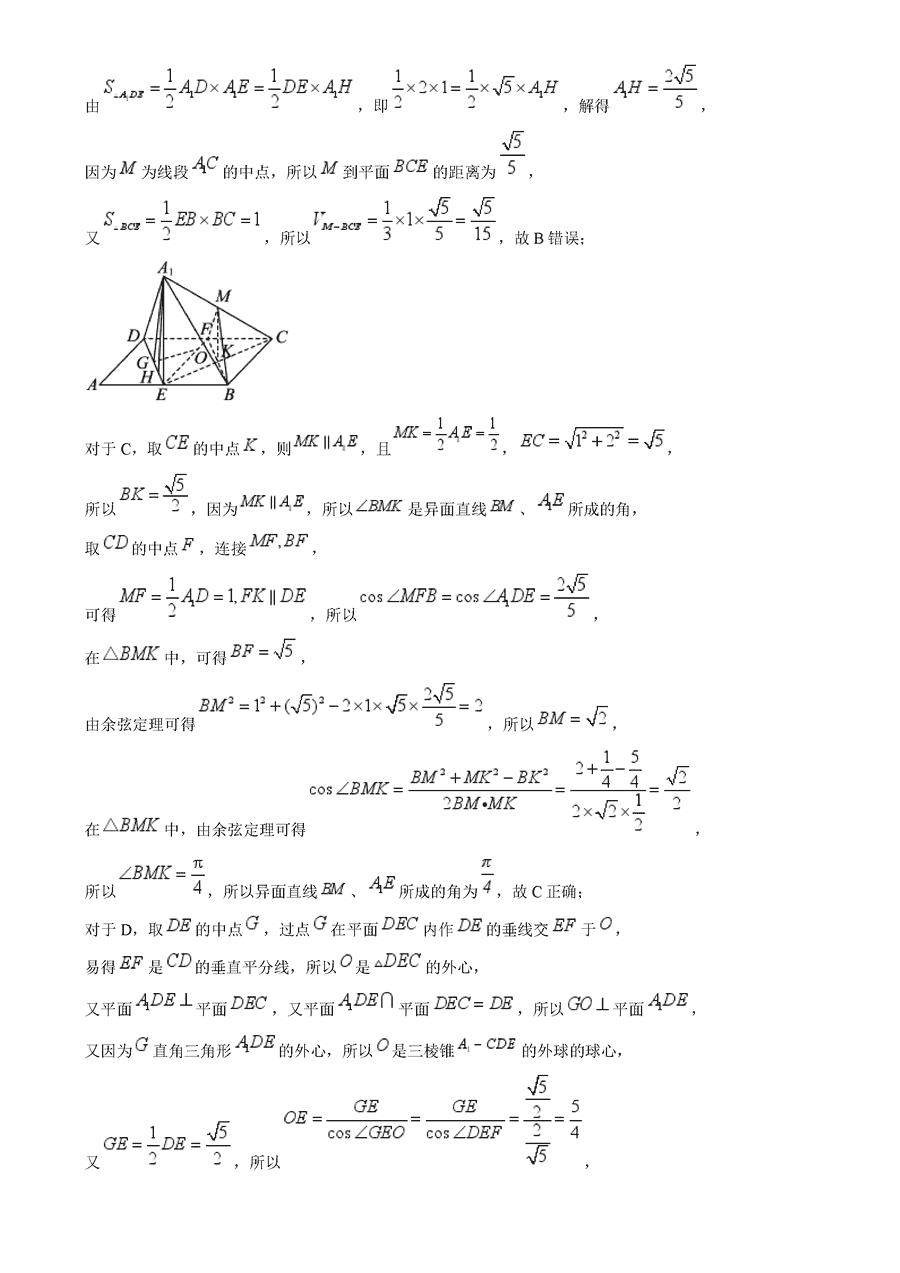 由 S△A₁DE = 1/2 A₁D × A₁E = 1/2 DE × A₁H，即 1/2 × 2 × 1 = 1/2 × √5 × A₁H，解得 A₁H = 2√5/5，
因为 M 为线段 A₁C 的中点，所以 M 到平面 BCE 的距离为 √5/5，
又 S△BCE = 1/2 EB × BC = 1，所以 V_M−BCE = 1/3 × 1 × √5/5 = √5/15，故 B 错误；
A₁
M
D F C
G O K
A H
E B
对于 C，取 CE 的中点 K，则 MK ∥ A₁E，且 MK = 1/2 A₁E = 1/2，EC = √(1² + 2²) = √5，
所以 BK = √5/2，因为 MK ∥ A₁E，所以 ∠BMK 是异面直线 BM、A₁E 所成的角，
取 CD 的中点 F，连接 MF, BF，
可得 MF = 1/2 A₁D = 1, FK ∥ DE，所以 cos ∠MFB = cos ∠A₁DE = 2√5/5，
在 △BMK 中，可得 BF = √5，
由余弦定理可得 BM² = 1² + (√5)² − 2×1×√5×2√5/5 = 2，所以 BM = √2，
在 △BMK 中，由余弦定理可得 cos ∠BMK = (BM² + MK² − BK²)/(2BM•MK) = (2 + 1/4 − 5/4)/(2×√2×1/2) = √2/2，
所以 ∠BMK = π/4，所以异面直线 BM、A₁E 所成的角为 π/4，故 C 正确；
对于 D，取 DE 的中点 G，过点 G 在平面 DEC 内作 DE 的垂线交 EF 于 O，
易得 EF 是 CD 的垂直平分线，所以 O 是 △DEC 的外心，
又平面 A₁DE ⊥ 平面 DEC，又平面 A₁DE ∩ 平面 DEC = DE，所以 GO ⊥ 平面 A₁DE，
又因为 G 直角三角形 A₁DE 的外心，所以 O 是三棱锥 A₁−CDE 的外球的球心，
又 GE = 1/2 DE = √5/2，所以 OE = GE/cos ∠GEO = GE/cos ∠DEF = (√5/2)/(2/√5) = 5/4，